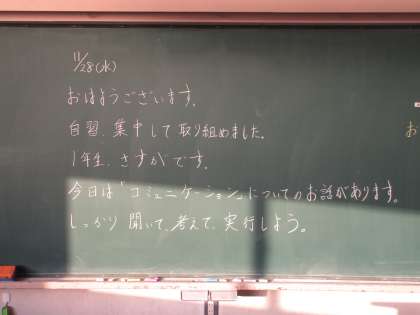 11/28(水)
おはようございます。
自習、集中して取り組めました。
1年生、さすがです。
今日は「コミュニケーション」についてのお話があります。
しっかり聞いて、考えて、実行しよう。
お